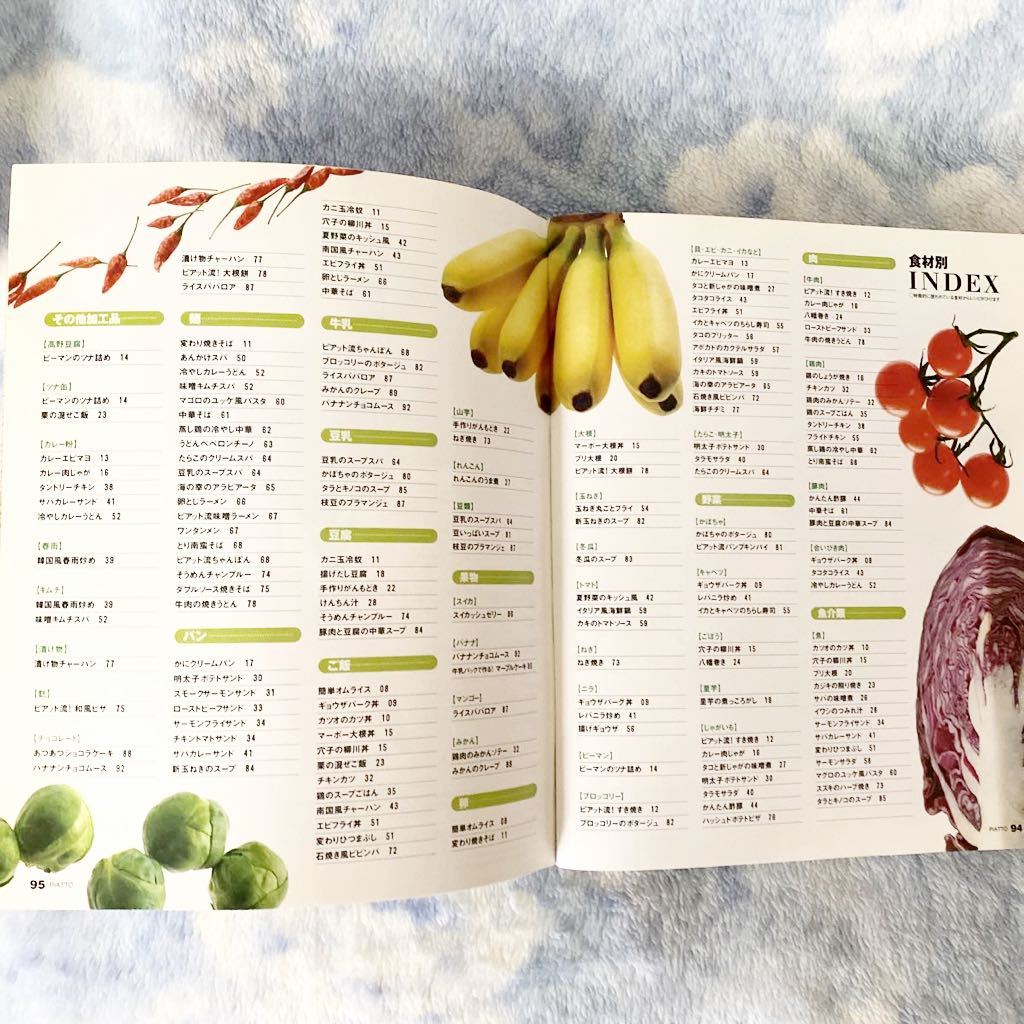 食材別
INDEX
肉
【牛肉】
ピアット流!すき焼き 12
カレー肉じゃが 16
八幡巻き 24
ローストビーフサンド 33
牛肉の焼うどん 78
【鶏肉】
鶏のしょうが焼き 16
チキンカツ 32
鶏肉のみかんソテー 32
鶏のスープごはん 35
タンドリーチキン 38
フライドチキン 55
蒸し鶏の冷やし中華 62
とり南蛮そば 68
【豚肉】
かんたん酢豚 44
中華そば 61
豚肉と豆腐の中華スープ 84
【合いびき肉】
ギョウザバーク丼 09
タコライス 43
冷やしカレーうどん 52
魚介類
【魚】
カツオのカツ丼 10
穴子の柳川丼 15
ブリ大根 20
カジキの照り焼き 23
サバの味噌煮 26
イワシのつみれ汁 28
サーモンフライサンド 34
サバカレーサンド 41
変わりひつまぶし 51
サーモンサラダ 58
マグロのユッケ風パスタ 60
スズキのハーブ焼き 73
タラとキノコのスープ 85
【貝・エビ・カニ・イカなど】
カレーエビマヨ 13
かにクリームパン 17
タコと新じゃがの味噌煮 27
タコライス 43
エビフライ丼 51
イカとキャベツのちらし寿司 55
タコのフリッター 56
アボカドのカクテルサラダ 57
イタリア風海鮮鍋 59
カキのトマトソース 59
海の幸のアラビアータ 65
石焼き風ビビンバ 72
海鮮チヂミ 77
【たらこ・明太子】
明太子ポテトサンド 30
タラモサラダ 40
たらこのクリームスパ 64
野菜
【かぼちゃ】
かぼちゃのポタージュ 80
ピアット流パンプキンパイ 81
【キャベツ】
ギョウザバーク丼 09
レバニラ炒め 41
イカとキャベツのちらし寿司 55
【ごぼう】
穴子の柳川丼 15
八幡巻き 24
【里芋】
里芋の煮っころがし 18
【じゃがいも】
ピアット流!すき焼き 12
カレー肉じゃが 16
タコと新じゃがの味噌煮 27
明太子ポテトサンド 30
タラモサラダ 40
かんたん酢豚 44
ハッシュドポテトピザ 76
【大根】
マーボー大根丼 15
ブリ大根 20
ピアット流!大根餅 78
【玉ねぎ】
玉ねぎ丸ごとフライ 54
新玉ねぎのスープ 82
【冬瓜】
冬瓜のスープ 83
【トマト】
夏野菜のキッシュ風 42
イタリア風海鮮鍋 59
カキのトマトソース 59
【ねぎ】
ねぎ焼き 73
【ニラ】
ギョウザバーク丼 09
レバニラ炒め 41
揚げギョウザ 56
【ピーマン】
ピーマンのツナ詰め 14
【ブロッコリー】
ピアット流!すき焼き 12
ブロッコリーのポタージュ 82
PIATTO 94
【山芋】
手作りがんもどき 22
ねぎ焼き 73
【れんこん】
れんこんのうま煮 27
【豆類】
豆乳のスープスパ 64
豆いっぱいスープ 81
枝豆のブラマンジェ 87
果物
【スイカ】
スイカッシュゼリー 86
【バナナ】
バナナンチョコムース 92
牛乳パックで作る!マーブルケーキ 93
【マンゴー】
ライスババロア 87
【みかん】
鶏肉のみかんソテー 32
みかんのクレープ 88
卵
簡単オムライス 08
変わり焼きそば 11
カニ玉冷奴 11
穴子の柳川丼 15
夏野菜のキッシュ風 42
南国風チャーハン 43
エビフライ丼 51
卵としラーメン 66
中華そば 61
牛乳
ピアット流ちゃんぽん 68
ブロッコリーのポタージュ 82
ライスババロア 87
みかんのクレープ 89
バナナンチョコムース 92
豆乳
豆乳のスープスパ 64
かぼちゃのポタージュ 80
タラとキノコのスープ 85
枝豆のブラマンジェ 87
豆腐
カニ玉冷奴 11
揚げだし豆腐 18
手作りがんもどき 22
けんちん汁 28
そうめんチャンプルー 74
豚肉と豆腐の中華スープ 84
ご飯
簡単オムライス 08
ギョウザバーク丼 09
カツオのカツ丼 10
マーボー大根丼 15
穴子の柳川丼 15
栗の混ぜご飯 23
チキンカツ 32
鶏のスープごはん 35
南国風チャーハン 43
エビフライ丼 51
変わりひつまぶし 51
石焼き風ビビンバ 72
漬け物チャーハン 77
ピアット流!大根餅 78
ライスババロア 87
麺
変わり焼きそば 11
あんかけスパ 50
冷やしカレーうどん 52
味噌キムチスパ 52
マゴロのユッケ風パスタ 60
中華そば 61
蒸し鶏の冷やし中華 62
うどんペペロンチーノ 63
たらこのクリームスパ 64
豆乳のスープスパ 64
海の幸のアラビアータ 65
卵としラーメン 66
ピアット流味噌ラーメン 67
ワンタンメン 67
とり南蛮そば 68
ピアット流ちゃんぽん 68
そうめんチャンプルー 74
ダブルソース焼きそば 75
牛肉の焼きうどん 78
パン
かにクリームパン 17
明太子ポテトサンド 30
スモークサーモンサンド 31
ローストビーフサンド 33
サーモンフライサンド 34
チキントマトサンド 34
サバカレーサンド 41
新玉ねぎのスープ 84
その他加工品
【高野豆腐】
ピーマンのツナ詰め 14
【ツナ缶】
ピーマンのツナ詰め 14
栗の混ぜご飯 23
【カレー粉】
カレーエビマヨ 13
カレー肉じゃが 16
タンドリーチキン 38
サバカレーサンド 41
冷やしカレーうどん 52
【春雨】
韓国風春雨炒め 39
【キムチ】
韓国風春雨炒め 39
味噌キムチスパ 52
【漬け物】
漬け物チャーハン 77
【麩】
ピアット流!和風ピザ 75
【チョコレート】
あつあつショコラケーキ 88
バナナンチョコムース 92
95 PIATTO